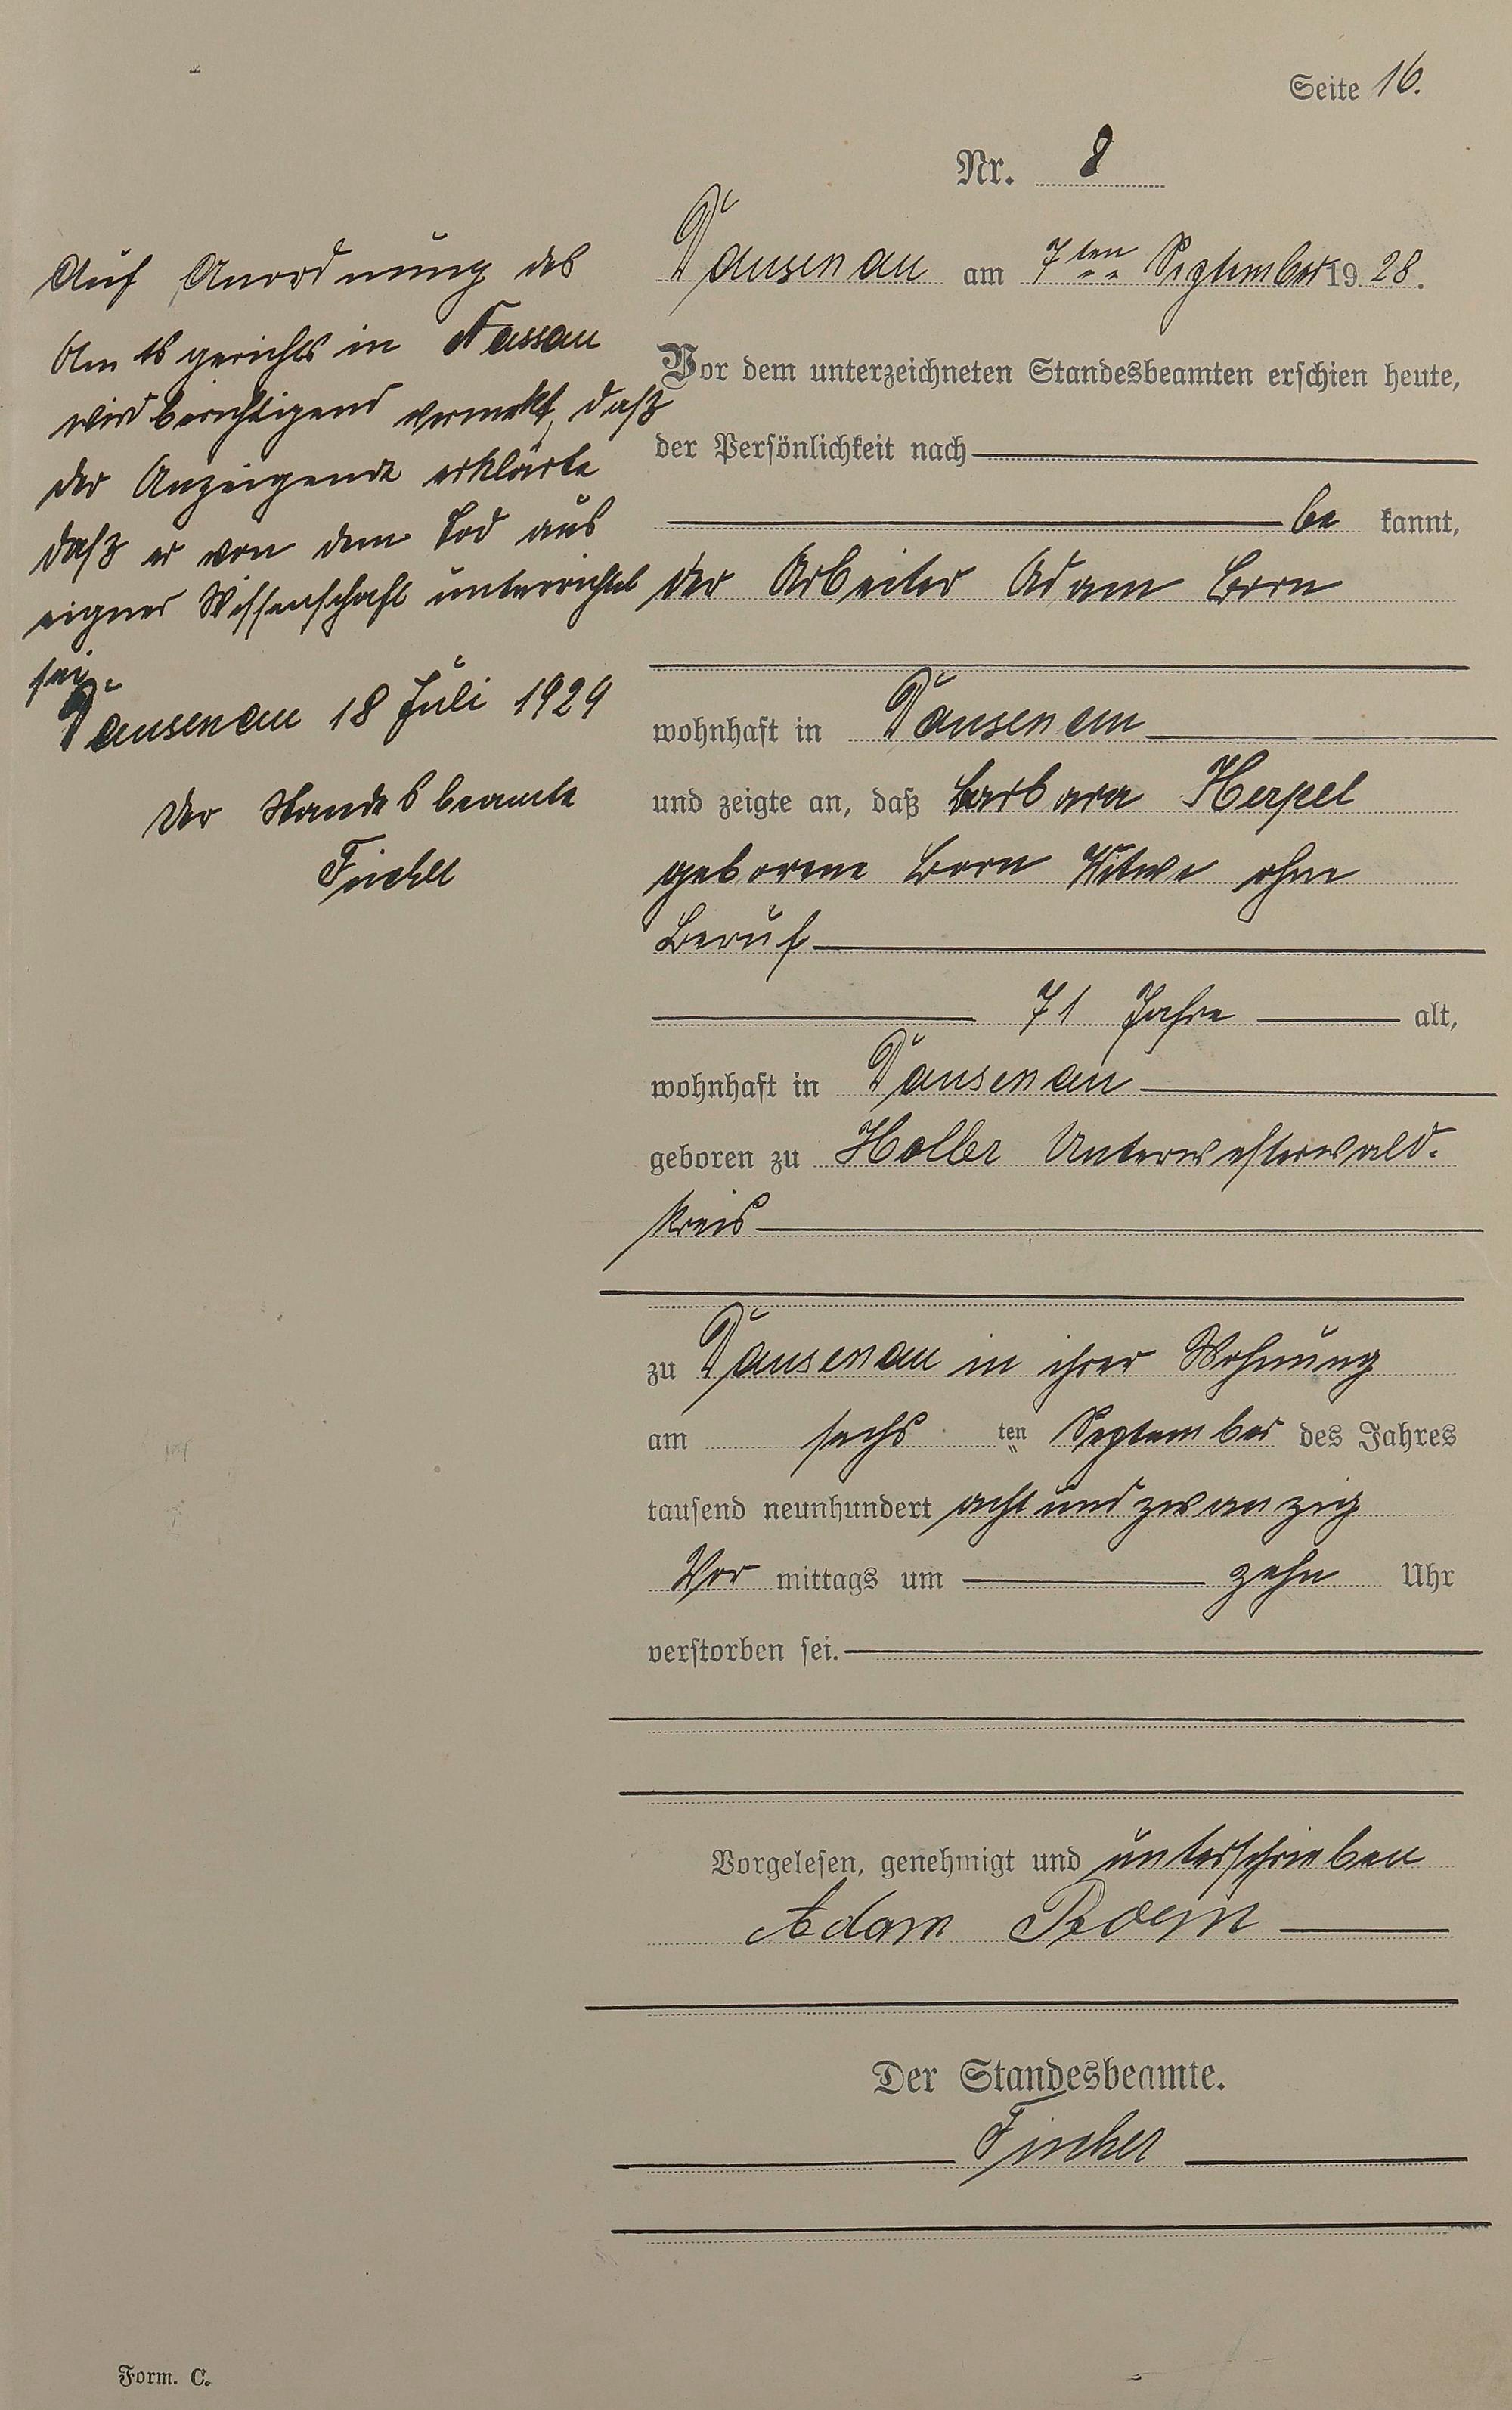 Seite 16.
Nr. 8
Dausenau am 7ten September 1928.
Vor dem unterzeichneten Standesbeamten erschien heute,
der Persönlichkeit nach
be kannt,
der Arbeiter Adam Born
wohnhaft in Dausenau
und zeigte an, daß Barbara Herpel
geborene Born Witwe ohne
Beruf
71 Jahre alt,
wohnhaft in Dausenau
geboren zu Holler Unterwesterwald-
kreis
zu Dausenau in ihrer Wohnung
am sechs ten September des Jahres
tausend neunhundert acht und zwanzig
Vor mittags um zehn Uhr
verstorben sei.
Vorgelesen, genehmigt und unterschrieben
Adam Born
Der Standesbeamte.
Fischer
Auf Anordnung des
Amtsgerichts in Nassau
wird berichtigend vermerkt, daß
der Anzeigende erklärte
daß er von dem Tod aus
eigner Wissenschaft unterrichtet
sei.
Dausenau 18 Juli 1929
Der Standesbeamte
Fischer
Form. C.